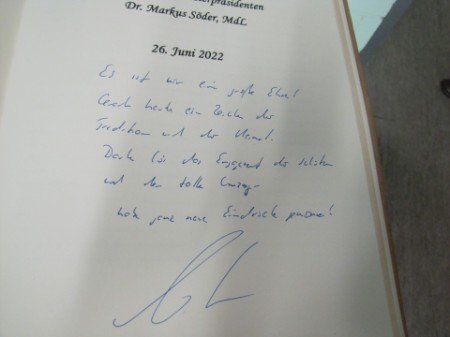 erpräsidenten
Dr. Markus Söder, MdL
26. Juni 2022
Es ist mir eine große Ehre!
Gerade heute ein Zeichen der
Tradition und der Heimat.
Dank für das Engagement der Schützen
und den tolle
habe ganz neue Eindrücke gewonnen!